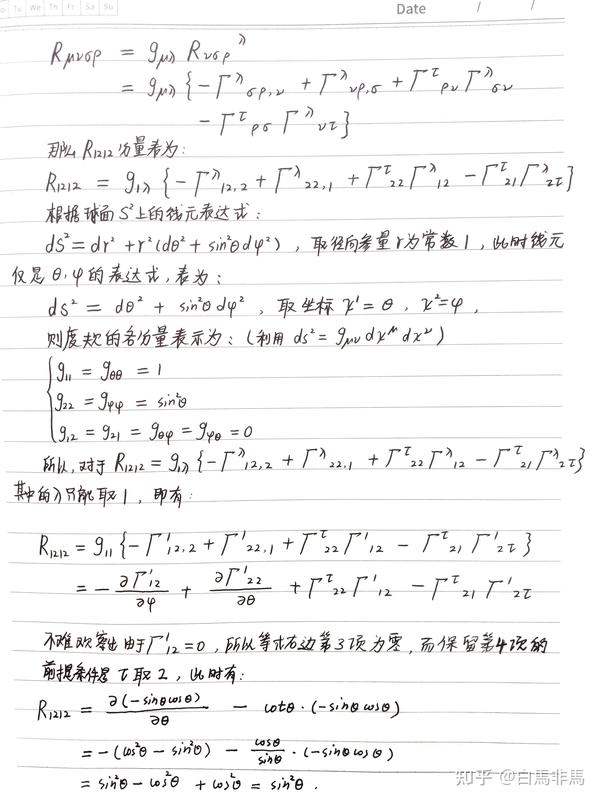 o Tu We Th Fr Sa Su
Date / /
R_{μνσρ} = g_{μλ} R_{νσρ}^λ
= g_{μλ} {-Γ^λ_{σρ,ν} + Γ^λ_{νρ,σ} + Γ^τ_{ρν} Γ^λ_{σν}
- Γ^τ_{ρσ} Γ^λ_{ντ}}
那么 R_{1212} 分量表为:
R_{1212} = g_{1λ} {-Γ^λ_{12,2} + Γ^λ_{22,1} + Γ^τ_{22} Γ^λ_{12} - Γ^τ_{21} Γ^λ_{2τ}}
根据球面 S² 上的线元表达式:
dS² = dr² + r²(dθ² + sin²θdφ²), 取径向参量r为常数1, 此时线元
仅是 θ, φ 的表达式, 表为:
dS² = dθ² + sin²θdφ², 取坐标 x¹ = θ, x² = φ,
则度规的各分量表示为: (利用 ds² = g_{μν} dx^μ dx^ν)
g_{11} = g_{θθ} = 1
g_{22} = g_{φφ} = sin²θ
g_{12} = g_{21} = g_{θφ} = g_{φθ} = 0
所以, 对于 R_{1212} = g_{1λ} {-Γ^λ_{12,2} + Γ^λ_{22,1} + Γ^τ_{22} Γ^λ_{12} - Γ^τ_{21} Γ^λ_{2τ}}
其中的λ只能取1, 即有:
R_{1212} = g_{11} {-Γ¹_{12,2} + Γ¹_{22,1} + Γ^τ_{22} Γ¹_{12} - Γ^τ_{21} Γ¹_{2τ}}
= - ∂Γ¹_{12}/∂φ + ∂Γ¹_{22}/∂θ + Γ^τ_{22} Γ¹_{12} - Γ^τ_{21} Γ¹_{2τ}
不难观察出由于 Γ¹_{12} = 0, 所以等式右边第3项为零, 而保留第4项的
前提条件是 τ 取 2, 此时有:
R_{1212} = ∂(-sinθcosθ)/∂θ - cotθ·(-sinθcosθ)
= -(cos²θ - sin²θ) - cosθ/sinθ ·(-sinθcosθ)
= sin²θ - cos²θ + cos²θ = sin²θ.
知乎 @白馬非馬